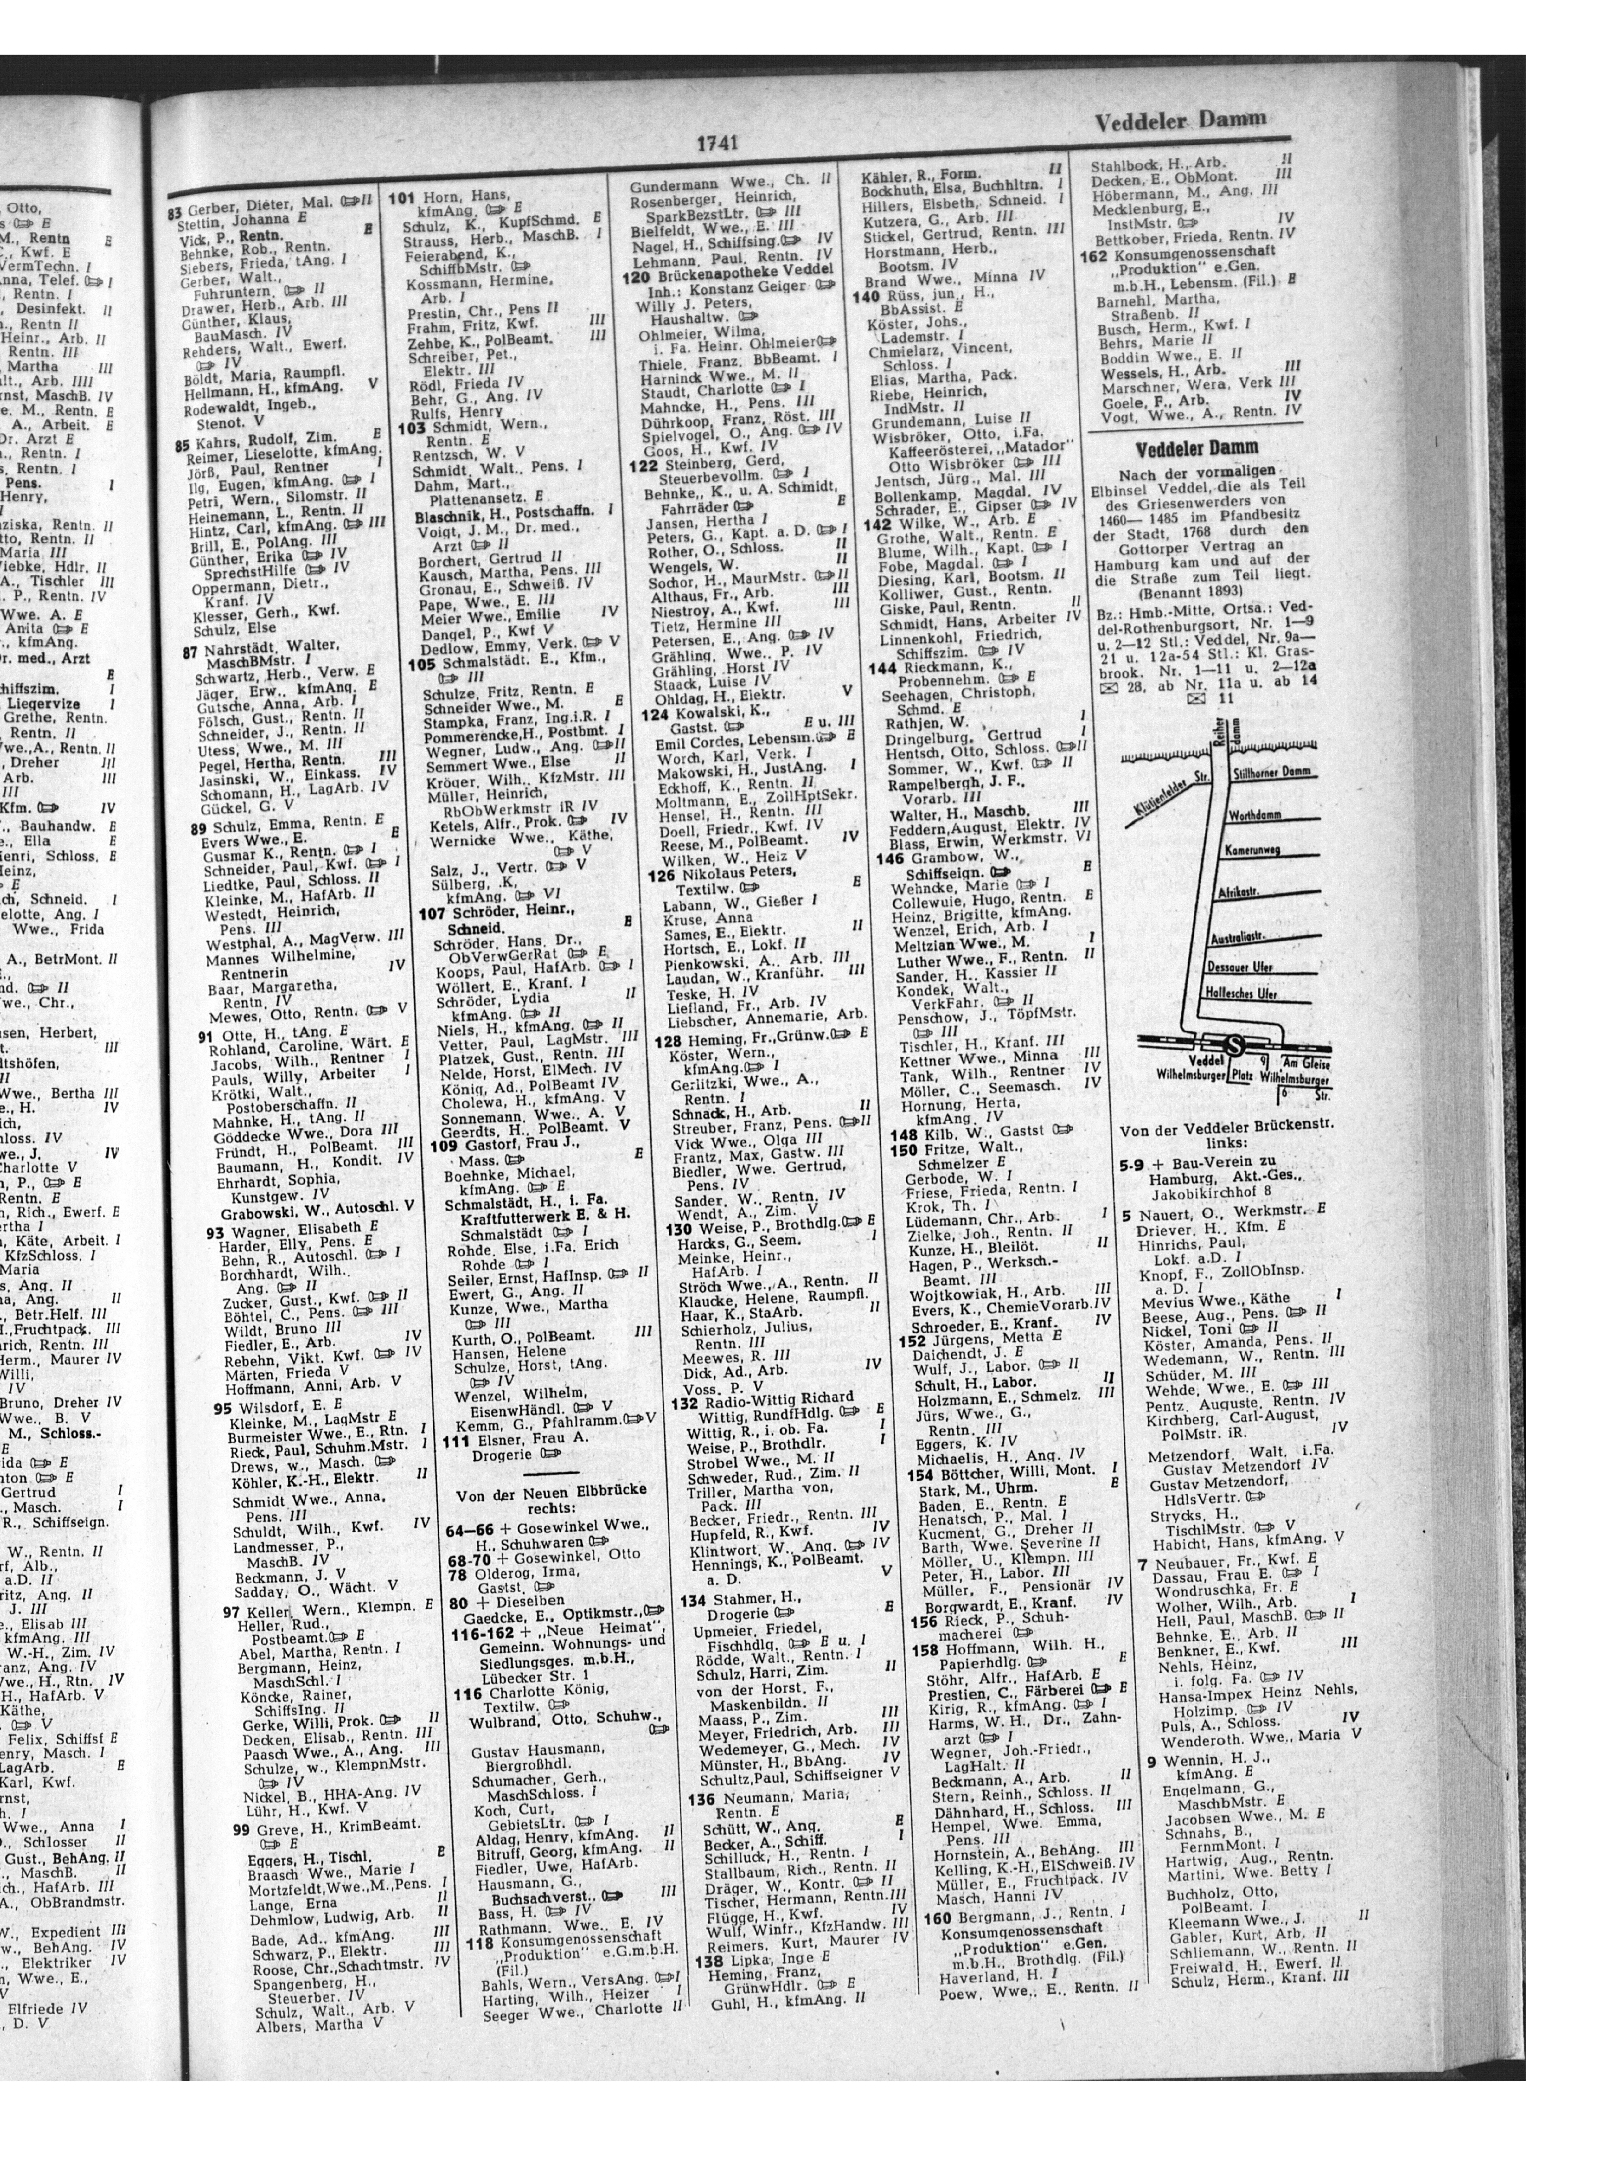 Otto,
E
M., Rentn E
Kwf. E
VermTechn. I
nna, Telef. I
Rentn. I
Desinfekt. II
Rentn II
Heinr., Arb. II
Rentn. III
Martha III
lt., Arb. IIII
rnst, MaschB. IV
e. M., Rentn. E
A., Arbeit. E
Dr. Arzt E
Rentn. I
Rentn. I
Pens. I
Henry,
ziska, Rentn. II
tto, Rentn. II
Maria III
Viebke, Hdlr. II
A., Tischler III
P., Rentn. IV
Wwe. A. E
Anita E
kfmAng.
r. med., Arzt
E
chiffszim. I
Liegervize I
Grethe, Rentn.
Rentn. II
we., A., Rentn. II
Dreher III
Arb. III
III
Kfm. IV
Bauhandw. E
Ella E
Henri, Schloss. E
Heinz,
E
ch, Schneid. I
elotte, Ang. I
Wwe., Frida
A., BetrMont. II
nd. II
we., Chr.,
usen, Herbert,
t. III
dtshöfen,
II
Wwe., Bertha III
e., H. IV
ich,
hloss. IV
we., J. IV
Charlotte V
P., E
Rentn. E
Rich., Ewerf. E
ertha I
Käte, Arbeit. I
KfzSchloss. I
Maria
s, Ang. II
na, Ang. II
Betr.Helf. III
Fruchtpack. III
rich, Rentn. III
Herm., Maurer IV
Willi,
IV
Bruno, Dreher IV
Wwe., B. V
M., Schloss.-
E
ida E
nton E
Gertrud I
Masch. I
R., Schiffseign.
W., Rentn. II
rf, Alb.,
a.D. II
ritz, Ang. II
J. III
Elisab III
kfmAng. III
W.-H., Zim. IV
ranz, Ang. IV
we., H., Rtn. IV
H., HafArb. V
Käthe,
V
Felix, Schiffsf E
enry, Masch. I
LagArb. E
Karl, Kwf.
rnst,
h. I
Wwe., Anna I
Schlosser II
Gust., BehAng. II
MaschB. II
ich., HafArb. III
A., ObBrandmstr.
W., Expedient III
w., BehAng. IV
Elektriker IV
n, Wwe., E.,
V
Elfriede IV
D. V
1741
Veddeler Damm
83 Gerber, Dieter, Mal. II
Stettin, Johanna E
Vick, P., Rentn. E
Behnke, Rob., Rentn.
Siebers, Frieda, tAng. I
Gerber, Walt.,
Fuhruntern. II
Drawer, Herb., Arb. III
Günther, Klaus,
BauMasch. IV
Rehders, Walt., Ewerf.
IV
Böldt, Maria, Raumpfl.
Hellmann, H., kfmAng. V
Rodewaldt, Ingeb.,
Stenot. V
85 Kahrs, Rudolf, Zim. E
Reimer, Lieselotte, kfmAng.
Jörß, Paul, Rentner I
Ilg, Eugen, kfmAng. I
Petri, Wern., Silomstr. II
Heinemann, L., Rentn. II
Hintz, Carl, kfmAng. III
Brill, E., PolAng. III
Günther, Erika IV
SprechstHilfe IV
Oppermann, Dietr.,
Kranf. IV
Klesser, Gerh., Kwf.
Schulz, Else
87 Nahrstädt, Walter,
MaschBMstr. I
Schwartz, Herb., Verw. E
Jäger, Erw., kfmAng. E
Gutsche, Anna, Arb. I
Fölsch, Gust., Rentn. II
Schneider, J., Rentn. II
Utess, Wwe., M. III
Pegel, Hertha, Rentn. III
Jasinski, W., Einkass. IV
Schomann, H., LagArb. IV
Gückel, G. V
89 Schulz, Emma, Rentn. E
Evers Wwe., E. E
Gusmar K., Rentn. I
Schneider, Paul, Kwf. I
Liedtke, Paul, Schloss. II
Kleinke, M., HafArb. II
Westedt, Heinrich,
Pens. III
Westphal, A., MagVerw. III
Mannes Wilhelmine,
Rentnerin IV
Baar, Margaretha,
Rentn. IV
Mewes, Otto, Rentn. V
91 Otte, H., tAng. E
Rohland, Caroline, Wärt. E
Jacobs, Wilh., Rentner I
Pauls, Willy, Arbeiter I
Krötki, Walt.,
Postoberschaffn. II
Mahnke, H., tAng. II
Göddecke Wwe., Dora III
Fründt, H., PolBeamt. III
Baumann, H., Kondit. IV
Ehrhardt, Sophia,
Kunstgew. IV
Grabowski, W., Autoschl. V
93 Wagner, Elisabeth E
Harder, Elly, Pens. E
Behn, R., Autoschl. I
Borchhardt, Wilh.,
Ang. II
Zucker, Gust., Kwf. II
Böhtel, C., Pens. III
Wildt, Bruno III
Fiedler, E., Arb. IV
Rebehn, Vikt. Kwf. IV
Märten, Frieda V
Hoffmann, Anni, Arb. V
95 Wilsdorf, E. E
Kleinke, M., LagMstr E
Burmeister Wwe., E., Rtn. I
Rieck, Paul, Schuhm.Mstr. I
Drews, w., Masch.
Köhler, K.-H., Elektr. II
Schmidt Wwe., Anna,
Pens. III
Schuldt, Wilh., Kwf. IV
Landmesser, P.,
MaschB. IV
Beckmann, J. V
Sadday, O., Wächt. V
97 Keller, Wern., Klempn. E
Heller, Rud.,
Postbeamt. E
Abel, Martha, Rentn. I
Bergmann, Heinz,
MaschSchl. I
Köncke, Rainer,
SchiffsIng. II
Gerke, Willi, Prok. II
Decken, Elisab., Rentn. III
Paasch Wwe., A., Ang. III
Schulze, w., KlempnMstr.
IV
Nickel, B., HHA-Ang. IV
Lühr, H., Kwf. V
99 Greve, H., KrimBeamt.
E
Eggers, H., Tischl. E
Braasch Wwe., Marie I
Mortzfeldt, Wwe., M., Pens. I
Lange, Erna II
Dehmlow, Ludwig, Arb. II
Bade, Ad., kfmAng. III
Schwarz, P., Elektr. III
Roose, Chr., Schachtmstr. IV
Spangenberg, H.,
Steuerber. IV
Schulz, Walt., Arb. V
Albers, Martha V
101 Horn, Hans,
kfmAng. E
Schulz, K., KupfSchmd. E
Strauss, Herb., MaschB. I
Feierabend, K.,
SchiffbMstr.
Kossmann, Hermine,
Arb. I
Prestin, Chr., Pens II
Frahm, Fritz, Kwf. III
Zehbe, K., PolBeamt. III
Schreiber, Pet.,
Elektr. III
Rödl, Frieda IV
Behr, G., Ang. IV
Rulfs, Henry
103 Schmidt, Wern.,
Rentn. E
Rentzsch, W. V
Schmidt, Walt., Pens. I
Dahm, Mart.,
Plattenansetz. E
Blaschnik, H., Postschaffn. I
Voigt, J. M., Dr. med.,
Arzt II
Borchert, Gertrud II
Kausch, Martha, Pens. III
Gronau, E., Schweiß. IV
Pape, Wwe., E. III
Meier Wwe., Emilie IV
Dangel, P., Kwf V
Dedlow, Emmy, Verk. V
105 Schmalstädt. E., Kfm.,
III
Schulze, Fritz, Rentn. E
Schneider Wwe., M. E
Stampka, Franz, Ing.i.R. I
Pommerencke, H., Postbmt. I
Wegner, Ludw., Ang. II
Semmert Wwe., Else II
Kröger, Wilh., KfzMstr. III
Müller, Heinrich,
RbObWerkmstr iR IV
Ketels, Alfr., Prok. IV
Wernicke Wwe., Käthe,
V
Salz, J., Vertr. V
Sülberg, .K,
kfmAng. VI
107 Schröder, Heinr.,
Schneid. E
Schröder, Hans, Dr.,
ObVerwGerRat E
Koops, Paul, HafArb. I
Wöllert, E., Kranf. I
Schröder, Lydia II
kfmAng. II
Niels, H., kfmAng. II
Vetter, Paul, LagMstr. III
Platzek, Gust., Rentn. III
Nelde, Horst, ElMech. IV
König, Ad., PolBeamt IV
Cholewa, H., kfmAng. V
Sonnemann, Wwe., A. V
Geerdts, H., PolBeamt. V
109 Gastorf, Frau J.,
Mass. E
Boehnke, Michael,
kfmAng. E
Schmalstädt, H., i. Fa.
Kraftfutterwerk E. & H.
Schmalstädt I
Rohde, Else, i.Fa. Erich
Rohde I
Seiler, Ernst, HafInsp. II
Ewert, G., Ang. II
Kunze, Wwe., Martha
III
Kurth, O., PolBeamt. III
Hansen, Helene
Schulze, Horst, tAng.
IV
Wenzel, Wilhelm,
EisenwHändl. V
Kemm, G., Pfahlramm. V
111 Elsner, Frau A.
Drogerie
Von der Neuen Elbbrücke
rechts:
64—66 + Gosewinkel Wwe.,
H., Schuhwaren
68-70 + Gosewinkel, Otto
78 Olderog, Irma,
Gastst.
80 + Dieselben
Gaedcke, E., Optikmstr.,
116-162 + „Neue Heimat",
Gemeinn. Wohnungs- und
Siedlungsges. m.b.H.,
Lübecker Str. 1
116 Charlotte König,
Textilw.
Wulbrand, Otto, Schuhw.,
Gustav Hausmann,
Biergroßhdl.
Schumacher, Gerh.,
MaschSchloss. I
Koch, Curt,
GebietsLtr. I
Aldag, Henry, kfmAng. II
Bitruff, Georg, kfmAng. II
Fiedler, Uwe, HafArb.
Hausmann, G.,
Buchsachverst., III
Bass, H. IV
Rathmann, Wwe., E. IV
118 Konsumgenossenschaft
„Produktion" e.G.m.b.H.
(Fil.)
Bahls, Wern., VersAng. I
Harting, Wilh., Heizer I
Seeger Wwe., Charlotte II
Gundermann Wwe., Ch. II
Rosenberger, Heinrich,
SparkBezstLtr. III
Bielfeldt, Wwe., E. III
Nagel, H., Schiffsing. IV
Lehmann, Paul, Rentn. IV
120 Brückenapotheke Veddel
Inh.: Konstanz Geiger
Willy J. Peters,
Haushaltw.
Ohlmeier, Wilma,
i. Fa. Heinr. Ohlmeier
Thiele, Franz, BbBeamt. I
Harninck Wwe., M. II
Staudt, Charlotte I
Mahncke, H., Pens. III
Dührkoop, Franz, Röst. III
Spielvogel, O., Ang. IV
Goos, H., Kwf. IV
122 Steinberg, Gerd,
Steuerbevollm. I
Behnke,, K., u. A. Schmidt,
Fahrräder E
Jansen, Hertha I
Peters, G., Kapt. a. D. I
Rother, O., Schloss. II
Wengels, W. II
Sochor, H., MaurMstr. II
Althaus, Fr., Arb. III
Niestroy, A., Kwf. III
Tietz, Hermine III
Petersen, E., Ang. IV
Grähling, Wwe., P. IV
Grähling, Horst IV
Staack, Luise IV
Ohldag, H., Elektr. V
124 Kowalski, K.,
Gastst. E u. III
Emil Cordes, Lebensm. E
Worch, Karl, Verk. I
Makowski, H., JustAng. I
Eckhoff, K., Rentn. II
Moltmann, E., ZollHptSekr.
Hensel, H., Rentn. III
Doell, Friedr., Kwf. IV
Reese, M., PolBeamt. IV
Wilken, W., Heiz V
126 Nikolaus Peters,
Textilw. E
Labann, W., Gießer I
Kruse, Anna
Sames, E., Elektr. II
Hortsch, E., Lokf. II
Pienkowski, A., Arb. III
Laudan, W., Kranführ. III
Teske, H. IV
Liefland, Fr., Arb. IV
Liebscher, Annemarie, Arb.
128 Heming, Fr., Grünw. E
Köster, Wern.,
kfmAng. I
Gerlitzki, Wwe., A.,
Rentn. I
Schnack, H., Arb. II
Streuber, Franz, Pens. II
Vick Wwe., Olga III
Frantz, Max, Gastw. III
Biedler, Wwe. Gertrud,
Pens. IV
Sander, W., Rentn. IV
Wendt, A., Zim. V
130 Weise, P., Brothdlg. E
Harcks, G., Seem. I
Meinke, Heinr.,
HafArb. I
Ströch Wwe., A., Rentn. II
Klaucke, Helene, Raumpfl.
Haar, K., StaArb. II
Schierholz, Julius,
Rentn. III
Meewes, R. III
Dick, Ad., Arb. IV
Voss, P. V
132 Radio-Wittig Richard
Wittig, RundfHdlg. E
Wittig, R., i. ob. Fa. I
Weise, P., Brothdlr. I
Strobel Wwe., M. II
Schweder, Rud., Zim. II
Triller, Martha von,
Pack. III
Becker, Friedr., Rentn. III
Hupfeld, R., Kwf. IV
Klintwort, W., Ang. IV
Hennings, K., PolBeamt.
a. D. V
134 Stahmer, H.,
Drogerie E
Upmeier, Friedel,
Fischhdlg. E u. I
Rödde, Walt., Rentn. I
Schulz, Harri, Zim. II
von der Horst, F.,
Maskenbildn. II
Maass, P., Zim. III
Meyer, Friedrich, Arb. III
Wedemeyer, G., Mech. IV
Münster, H., BbAng. IV
Schultz, Paul, Schiffseigner V
136 Neumann, Maria,
Rentn. E
Schütt, W., Ang. E
Becker, A., Schiff. I
Schilluck, H., Rentn. I
Stallbaum, Rich., Rentn. II
Dräger, W., Kontr. II
Tischer, Hermann, Rentn. III
Flügge, H., Kwf. IV
Wulf, Winfr., KfzHandw. III
Reimers, Kurt, Maurer IV
138 Lipka, Inge E
Heming, Franz,
GrünwHdlr. E
Guhl, H., kfmAng. II
Kähler, R., Form. II
Bockhuth, Elsa, Buchhltrn. I
Hillers, Elsbeth, Schneid. I
Kutzera, G., Arb. III
Stickel, Gertrud, Rentn. III
Horstmann, Herb.,
Bootsm. IV
Brand Wwe., Minna IV
140 Rüss, jun., H.,
BbAssist. E
Köster, Johs.,
Lademstr. I
Chmielarz, Vincent,
Schloss. I
Elias, Martha, Pack.
Riebe, Heinrich,
IndMstr. II
Grundemann, Luise II
Wisbröker, Otto, i.Fa.
Kaffeerösterei, „Matador"
Otto Wisbröker III
Jentsch, Jürg., Mal. III
Bollenkamp, Magdal. IV
Schrader, E., Gipser IV
142 Wilke, W., Arb. E
Grothe, Walt., Rentn. E
Blume, Wilh., Kapt. I
Fobe, Magdal. I
Diesing, Karl, Bootsm. II
Kolliwer, Gust., Rentn.
Giske, Paul, Rentn. II
Schmidt, Hans, Arbeiter IV
Linnenkohl, Friedrich,
Schiffszim. IV
144 Rieckmann, K.,
Probennehm. E
Seehagen, Christoph,
Schmd. E
Rathjen, W. I
Dringelburg, Gertrud I
Hentsch, Otto, Schloss. II
Sommer, W., Kwf. II
Rampelbergh, J. F.,
Vorarb. III
Walter, H., Maschb. III
Feddern, August, Elektr. IV
Blass, Erwin, Werkmstr. VI
146 Grambow, W.,
Schiffseign. E
Wehncke, Marie I
Collewuie, Hugo, Rentn. E
Heinz, Brigitte, kfmAng.
Wenzel, Erich, Arb. I
Meltzian Wwe., M. I
Luther Wwe., F., Rentn. II
Sander, H., Kassier II
Kondek, Walt.,
VerkFahr. II
Penschow, J., TöpfMstr.
III
Tischler, H., Kranf. III
Kettner Wwe., Minna III
Tank, Wilh., Rentner IV
Möller, C., Seemasch. IV
Hornung, Herta,
kfmAng. IV
148 Kilb, W., Gastst
150 Fritze, Walt.,
Schmelzer E
Gerbode, W. I
Friese, Frieda, Rentn. I
Krok, Th. I
Lüdemann, Chr., Arb. I
Zielke, Joh., Rentn. II
Kunze, H., Bleilöt. II
Hagen, P., Werksch.-
Beamt. III
Wojtkowiak, H., Arb. III
Evers, K., ChemieVorarb. IV
Schroeder, E., Kranf. IV
152 Jürgens, Metta E
Daichendt, J. E
Wulf, J., Labor. II
Schult, H., Labor. II
Holzmann, E., Schmelz. III
Jürs, Wwe., G.,
Rentn. III
Eggers, K. IV
Michaelis, H., Ang. IV
154 Böttcher, Willi, Mont. I
Stark, M., Uhrm. E
Baden, E., Rentn. E
Henatsch, P., Mal. I
Kucment, G., Dreher II
Barth, Wwe. Severine II
Möller, U., Klempn. III
Peter, H., Labor. III
Müller, F., Pensionär IV
Borgwardt, E., Kranf. IV
156 Rieck, P., Schuh-
macherei
158 Hoffmann, Wilh. H.,
Papierhdlg. E
Stöhr, Alfr., HafArb. E
Prestien, C., Färberei E
Kirig, R., kfmAng. I
Harms, W. H., Dr., Zahn-
arzt I
Wegner, Joh.-Friedr.,
LagHalt. II
Beckmann, A., Arb. II
Stern, Reinh., Schloss. II
Dähnhard, H., Schloss. III
Hempel, Wwe. Emma,
Pens. III
Hornstein, A., BehAng. III
Kelling, K.-H., ElSchweiß. IV
Müller, E., Fruchtpack. IV
Masch, Hanni IV
160 Bergmann, J., Rentn. I
Konsumgenossenschaft
„Produktion" e.Gen.
m.b.H., Brothdlg. (Fil.)
Haverland, H. I
Poew, Wwe., E., Rentn. II
Stahlbock, H., Arb. II
Decken, E., ObMont. III
Höbermann, M., Ang. III
Mecklenburg, E.,
InstMstr. IV
Bettkober, Frieda, Rentn. IV
162 Konsumgenossenschaft
„Produktion" e.Gen.
m.b.H., Lebensm. (Fil.) E
Barnehl, Martha,
Straßenb. II
Busch, Herm., Kwf. I
Behrs, Marie II
Boddin Wwe., E. II
Wessels, H., Arb. III
Marschner, Wera, Verk III
Goele, F., Arb. IV
Vogt, Wwe., A., Rentn. IV
Veddeler Damm
Nach der vormaligen
Elbinsel Veddel, die als Teil
des Griesenwerders von
1460— 1485 im Pfandbesitz
der Stadt, 1768 durch den
Gottorper Vertrag an
Hamburg kam und auf der
die Straße zum Teil liegt.
(Benannt 1893)
Bz.: Hmb.-Mitte, Ortsa.: Ved-
del-Rothenburgsort, Nr. 1—9
u. 2—12 Stl.: Veddel, Nr. 9a—
21 u. 12a-54 Stl.: Kl. Gras-
brook. Nr. 1—11 u. 2—12a
28, ab Nr. 11a u. ab 14
11
Reiher
damm
Klütjenfelder Str.
Stillhorner Damm
Worthdamm
Kamerunweg
Afrikastr.
Australiastr.
Dessauer Ufer
Hallesches Ufer
S
Veddel 9 Am Gleise
Wilhelmsburger Platz Wilhelmsburger
6 Str.
Von der Veddeler Brückenstr.
links:
5-9 + Bau-Verein zu
Hamburg, Akt.-Ges.,
Jakobikirchhof 8
5 Nauert, O., Werkmstr. E
Driever, H., Kfm. E
Hinrichs, Paul,
Lokf. a.D. I
Knopf, F., ZollObInsp.
a. D. I
Mevius Wwe., Käthe I
Beese, Aug., Pens. II
Nickel, Toni II
Köster, Amanda, Pens. II
Wedemann, W., Rentn. III
Schüder, M. III
Wehde, Wwe., E. III
Pentz, Auguste, Rentn. IV
Kirchberg, Carl-August,
PolMstr. iR. IV
Metzendorf, Walt, i.Fa.
Gustav Metzendorf IV
Gustav Metzendorf,
HdlsVertr.
Strycks, H.,
TischlMstr. V
Habicht, Hans, kfmAng. V
7 Neubauer, Fr., Kwf. E
Dassau, Frau E. I
Wondruschka, Fr. E
Wolher, Wilh., Arb. I
Hell, Paul, MaschB. II
Behnke, E., Arb. II
Benkner, E., Kwf. III
Nehls, Heinz,
i. folg. Fa. IV
Hansa-Impex Heinz Nehls,
Holzimp. IV
Puls, A., Schloss. IV
Wenderoth, Wwe., Maria V
9 Wennin, H. J.,
kfmAng. E
Engelmann, G.,
MaschbMstr. E
Jacobsen Wwe., M. E
Schnahs, B.,
FernmMont. I
Hartwig, Aug., Rentn.
Martini, Wwe. Betty I
Buchholz, Otto,
PolBeamt. I
Kleemann Wwe., J. II
Gabler, Kurt, Arb. II
Schliemann, W., Rentn. II
Freiwald, H., Ewerf. II
Schulz, Herm., Kranf. III